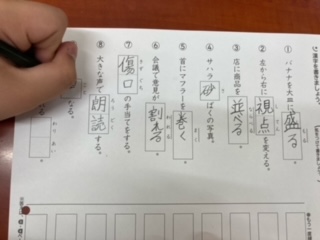 ① バナナを大皿に盛る。
② 左から右に視点を変える。
③ 店に商品を並べる。
④ サハラ砂ばくの写真。
⑤ 首にマフラーを巻く。
⑥ 会議で意見が割れる。
⑦ 傷口の手当てをする。
⑧ 大きな声で朗読する。